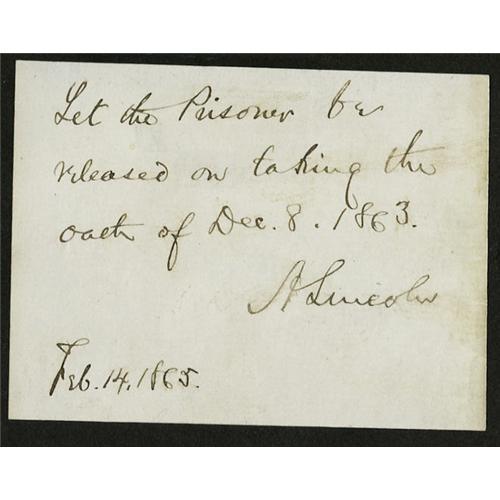 Let the Prisoner be
released on taking the
oath of Dec. 8. 1863.
A Lincoln
Feb. 14, 1865.